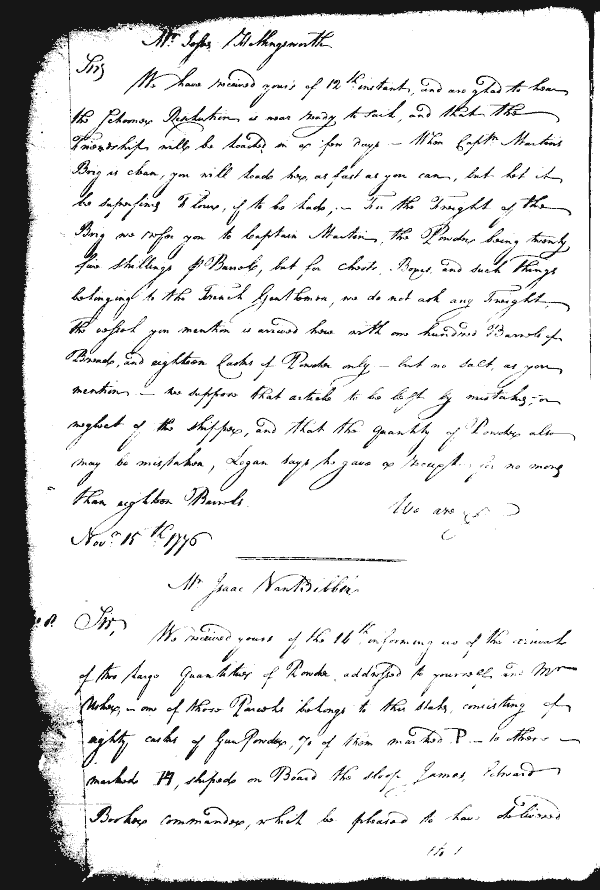 Mr. Jesse Hollingsworth
Sir,
We have received yours of 12th instant, and are glad to hear
the Schooner Resolution is near ready to sail, and that the
Friendship will be loaded in a few days — When Captn. Martin's
Brig is clean, you will load her as fast as you can, but let it
be superfine Flour, if to be had, — For the Freight of the
Brig we refer you to Captain Martin, the Powder being twenty
five shillings Barrels, but for Chests, Boxes, and such things
belonging to the French Gentlemen, we do not ask any Freight.
the vessel you mention is arrived here with one hundred Barrels of
Bread, and eighteen Casks of Powder only — but no salt, as you
mention — we suppose that article to be left by mistake, or
neglect of the shipper, and that the quantity of Powder also
may be mistaken, Logan says he gave a receipt for no more
than eighteen Barrels.
We are &c
Novr. 15th 1776
Mr. Isaac VanBibber
Sir,
We received yours of the 16th informing us of the arrivals
of two large Quantities of Powder, addressed to yourself, and Mr.
Usher, — one of those Parcels belongs to this state, consisting of
eighty casks of Gun Powder, 70 of them marked P — 10 others
marked H, shiped on Board the sloop James, Edward
Booker commander, which be pleased to have delivered